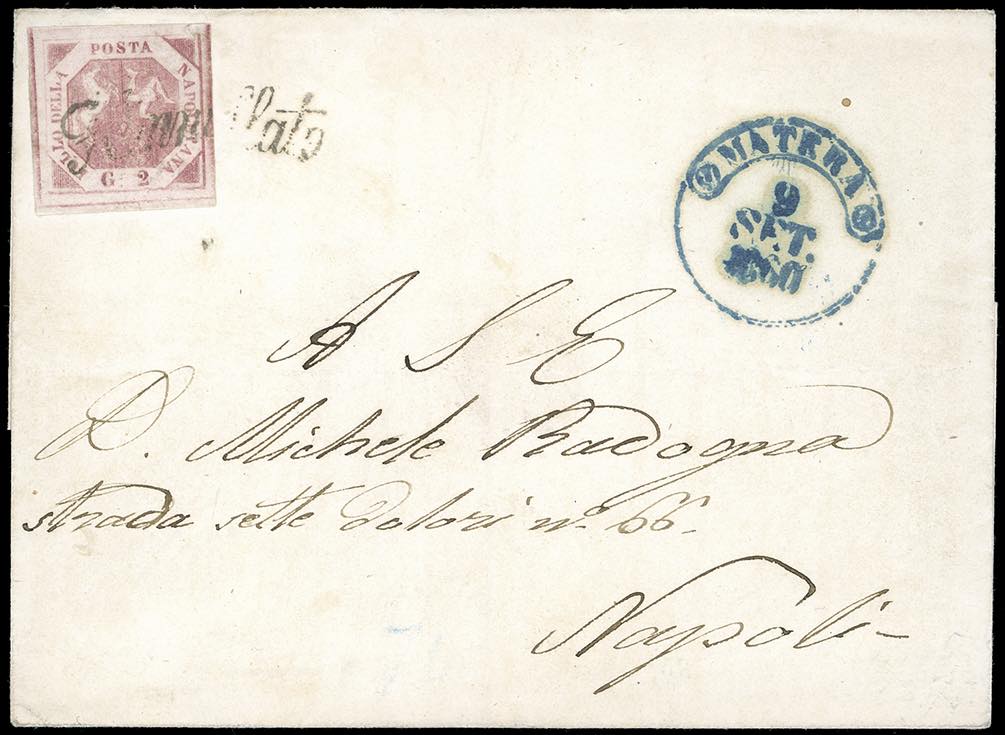 POSTA
NAPOLETANA
G. 2
LLO DELLA
Annullato
MATERA
9
SET.
1860
A S E
D. Michele Radogna
strada sette dolori n.o 66.
Napoli